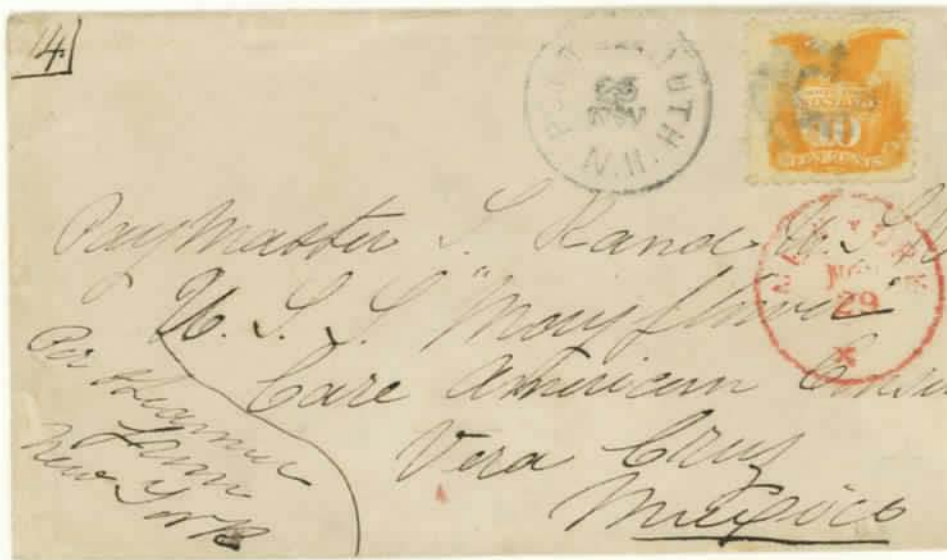 14.
PORTSMOUTH
25
NOV
N.H.
10
TEN CENTS
NEW YORK
NOV
29
PayMaster S. Rand U.S.N
U.S.S "Mayflower"
Care American Consu
Vera Cruz
Mexico
Per steamer
from
New York